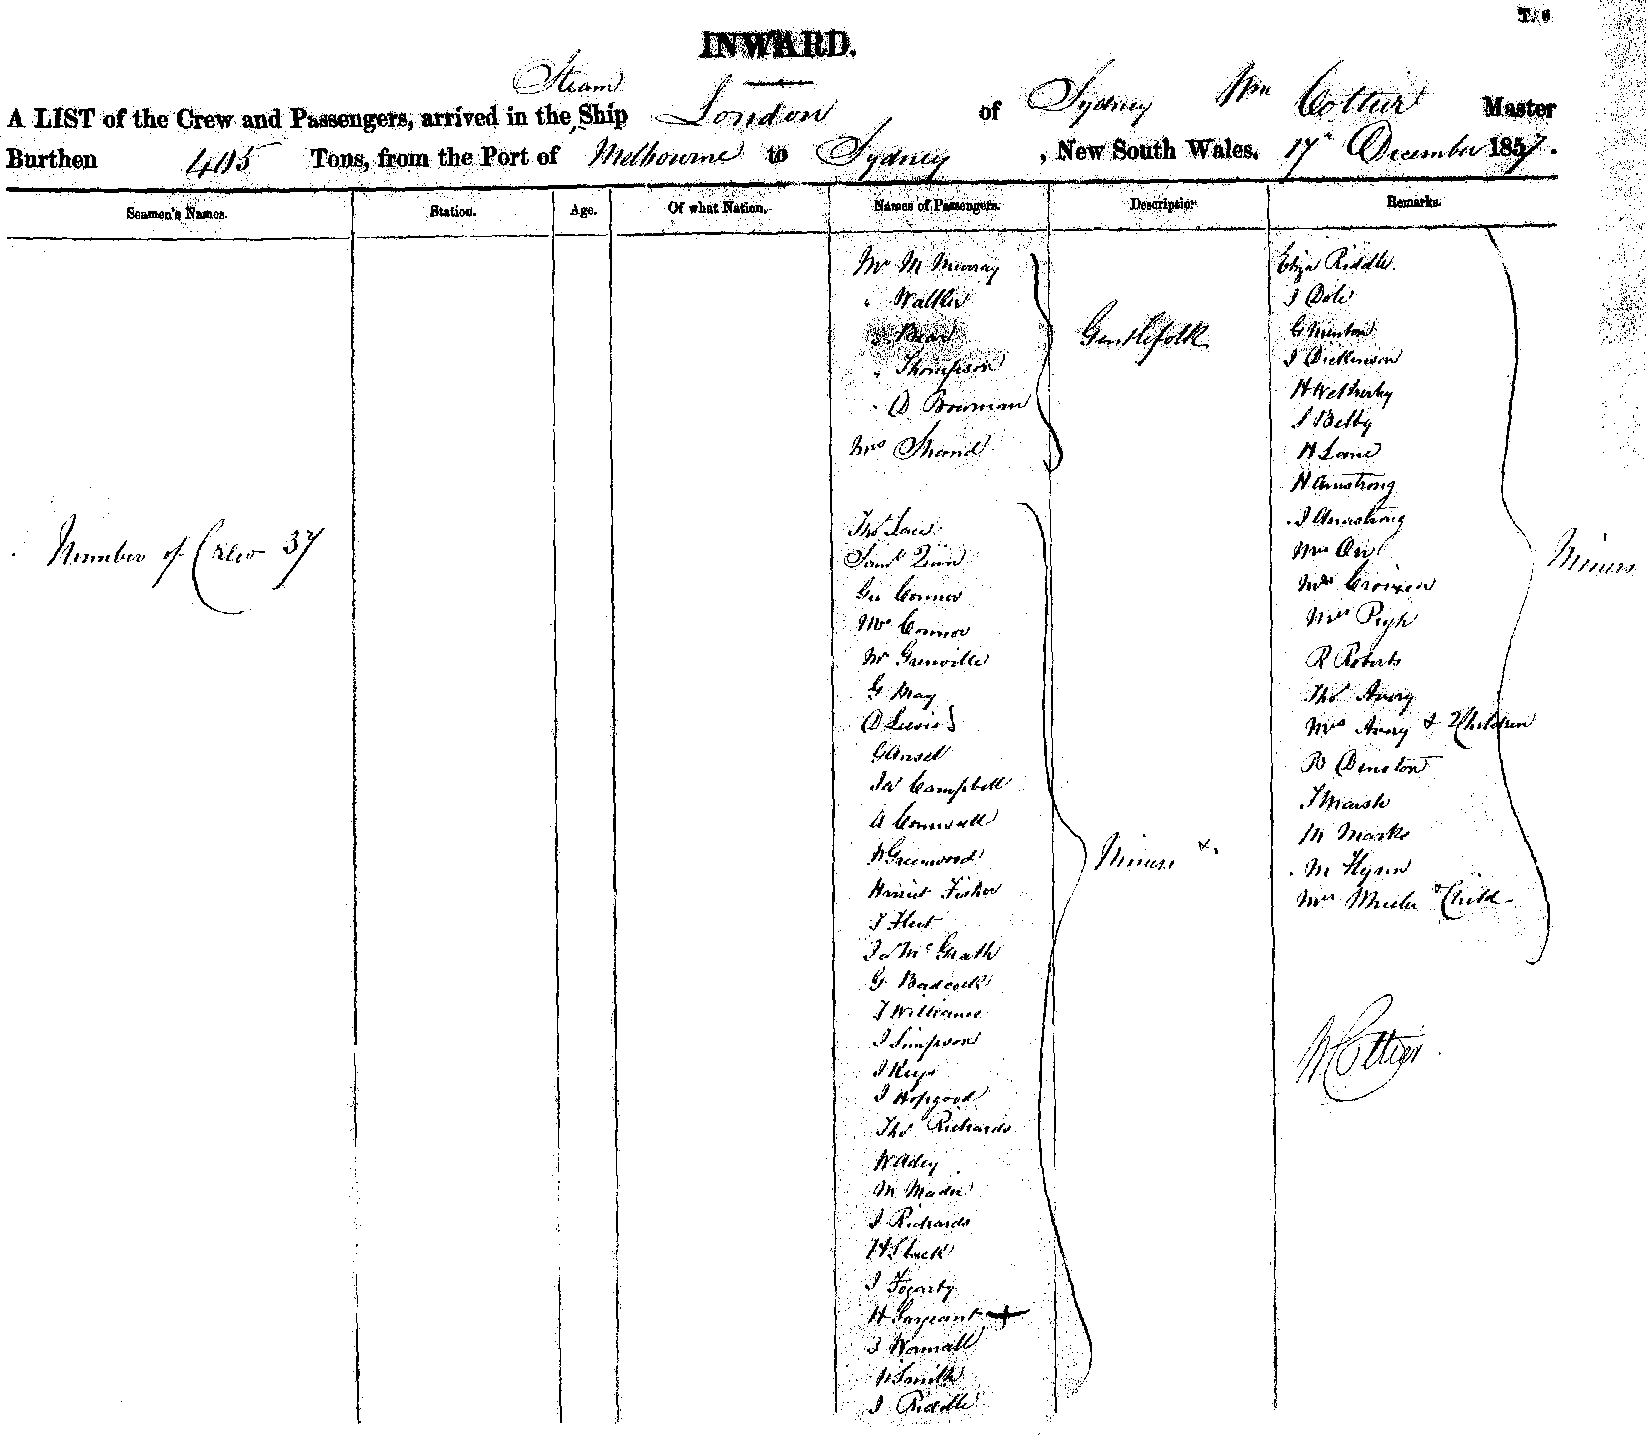 T. 6
INWARD.
A LIST of the Crew and Passengers, arrived in the Steam Ship London of Sydney Wm Cottier Master
Burthen 405 Tons, from the Port of Melbourne to Sydney, New South Wales, 17th December 1857.
Seamen's Names. Station. Age. Of what Nation. Names of Passengers. Description Remarks.
Number of Crew 37
Mr M Murray
" Walker
" Thompson
" D Bowman
Mrs Shand
Gentlefolk
Thos
Saml Quin
Geo Connor
Mrs Connor
Mr Grenville
G May
D Lewis
G Ansel
Jas Campbell
A Cornwall
W Greenwood
Harriet Fisher
J Fleet
Jas McGrath
G Badcock
J Williams
J Simpson
J Keys
J Hopgood
Thos Richards
W Adey
M
J Richards
H Slack
J Fogarty
H Sargeant +
J Wornall
W Smith
J Riddle
Miners &.
Eliza Riddle.
J Dole
G Minton
J Dickinson
H Wetherby
S Belby
H Lane
H Armstrong
J Armstrong
Mrs Orr
Mrs
Mrs Pugh
R Roberts
Thos Avery
Mrs Avery & 2 Children
R Denston
J Marsh
M Marks
M Flynn
Mrs & Child
Miners
W Cottier